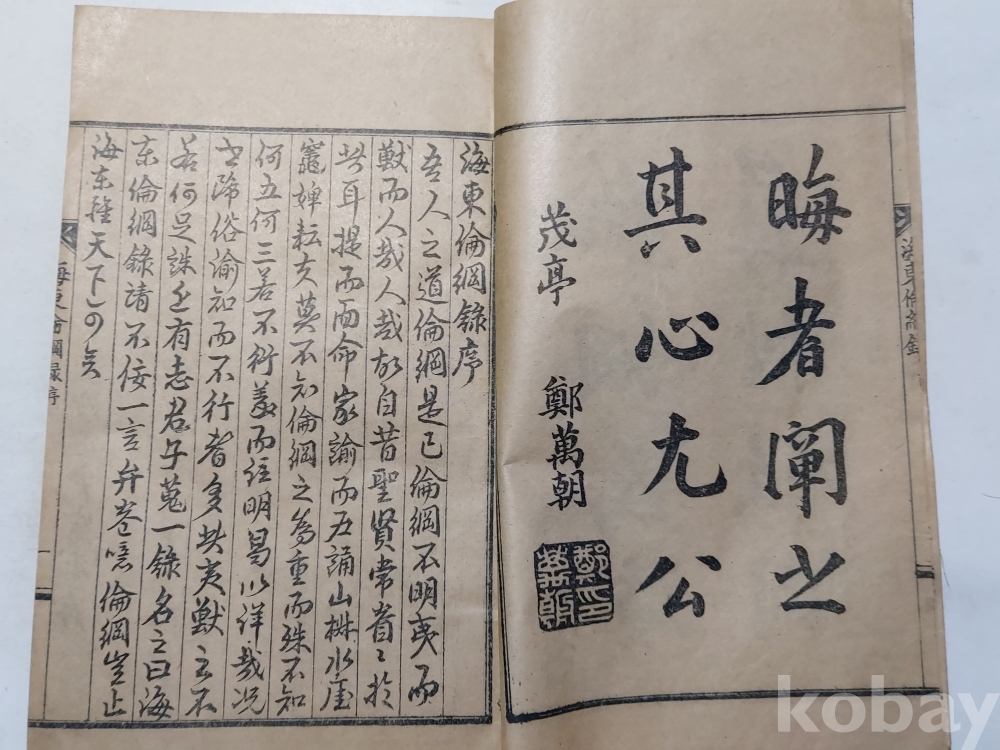 晦者闡之
其心尤公
茂亭 鄭萬朝
鄭萬朝印
海東倫綱錄
海東倫綱錄序
吾人之道倫綱是已倫綱不明夷而
獸而人哉人哉故自昔聖賢常眷眷於
此耳提而面命家諭而戶誦山樵水
竈婢耘夫莫不知倫綱之爲重而殊不知
何五何三若不衍義而註明曷以詳哉况
世降俗渝知而不行者多此夷獸之不
若何足誅近有志君子蒐一錄名之曰海
東倫綱錄請不佞一言弁卷噫倫綱豈止
海东雖天下可矣
海東倫綱錄序
一
kobay